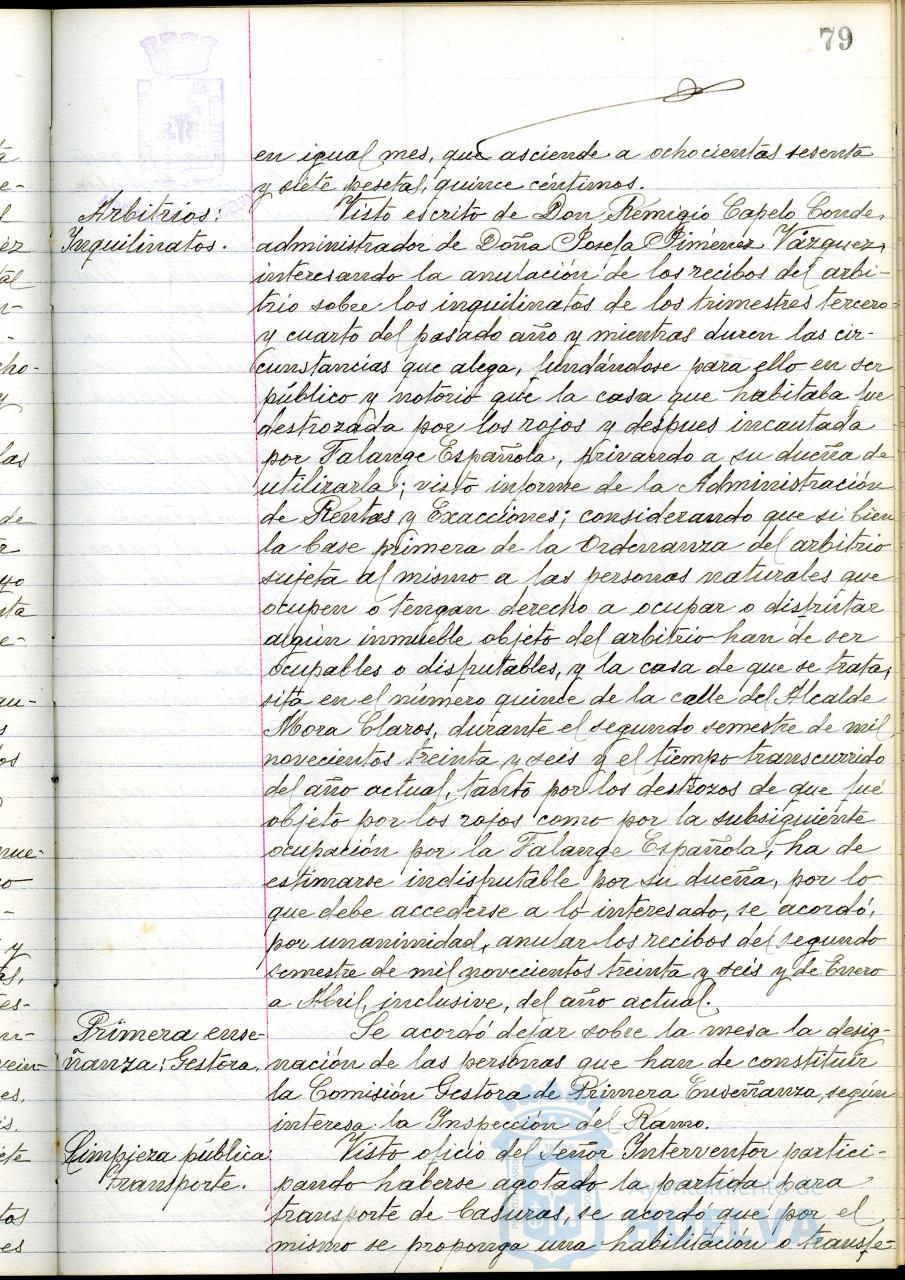 79
en igual mes, que asciende a ochocientas sesenta
y siete pesetas, quince céntimos.
Arbitrios:
Inquilinatos.
Visto escrito de Don Remigio Capelo Conde,
administrador de Doña Josefa Jiménez Vázquez,
interesando la anulación de los recibos del arbi-
trio sobre los inquilinatos de los trimestres tercero
y cuarto del pasado año y mientras duren las cir-
cunstancias que alega, fundándose para ello en ser
público y notorio que la casa que habitaba fue
destrozada por los rojos y despues incautada
por Falange Española, privando a su dueña de
utilizarla; visto informe de la Administración
de Rentas y Exacciones; considerando que si bien
la base primera de la Ordenanza del arbitrio
sujeta al mismo a las personas naturales que
ocupen o tengan derecho a ocupar o disfrutar
algún inmueble objeto del arbitrio han de ser
ocupables o disfrutables, y la casa de que se trata,
sita en el número quince de la calle del Alcalde
Mora Claros, durante el segundo semestre de mil
novecientos treinta y seis y el tiempo transcurrido
del año actual, tanto por los destrozos de que fué
objeto por los rojos como por la subsiguiente
ocupación por la Falange Española, ha de
estimarse indisfrutable por su dueña, por lo
que debe accederse a lo interesado, se acordó,
por unanimidad, anular los recibos del segundo
semestre de mil novecientos treinta y seis y de Enero
a Abril, inclusive, del año actual.
Primera ense-
ñanza: Gestora.
Se acordó dejar sobre la mesa la desig-
nación de las personas que han de constituir
la Comisión Gestora de Primera Enseñanza, según
interesa la Inspección del Ramo.
Limpieza pública
Transporte.
Visto oficio del Señor Interventor partici-
pando haberse agotado la partida para
transporte de basuras, se acordó que por el
mismo se proponga una habilitación o transfe-
Ayuntamiento de
HUELVA